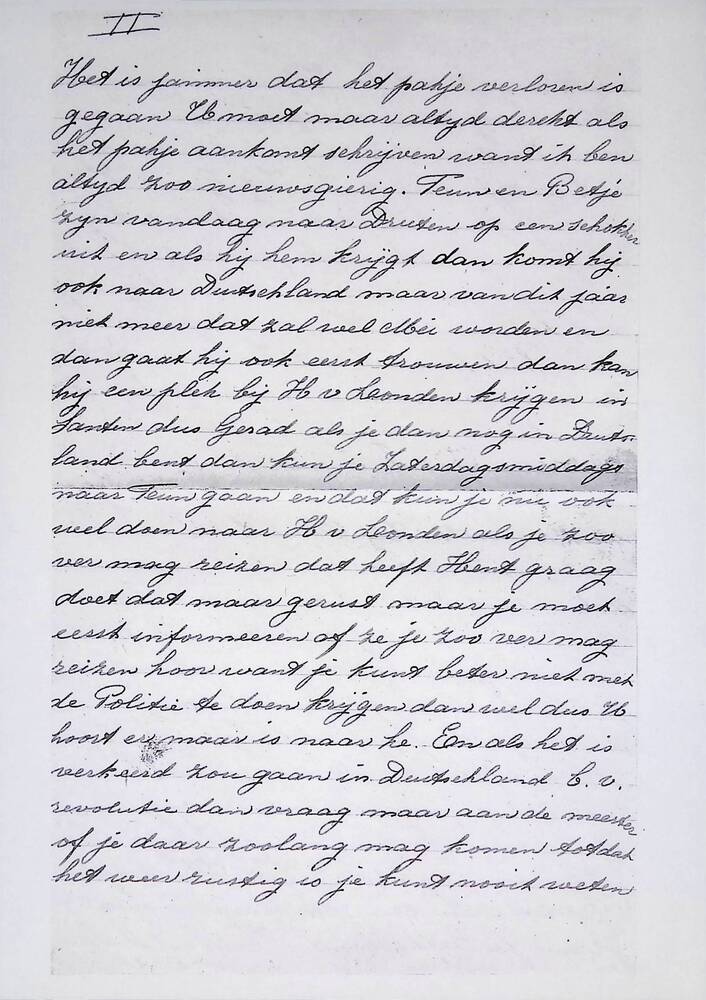 II
Het is jammer dat het pakje verloren is
gegaan U moet maar altyd derekt als
het pakje aankomt schrijven want ik ben
altyd zoo nieuwsgierig. Teun en Betje
zyn vandaag naar Druten op een schokker
uit en als hij hem krijgt dan komt hij
ook naar Duitschland maar van dit jaar
niet meer dat zal wel Mei worden en
dan gaat hij ook eerst trouwen dan kan
hij een plek bij H v Londen krijgen in
Santen dus Gerad als je dan nog in Duits-
land bent dan kun je Zaterdagsmiddags
naar Teun gaan en dat kun je nu ook
wel doen naar H v Londen als je zoo
ver mag reizen dat heeft Hent graag
doet dat maar gerust maar je moet
eerst informeeren of ze je zoo ver mag
reizen hoor want je kunt beter niet met
de Politie te doen krijgen dan wel dus U
hoort er maar is naar he. En als het is
verkeerd zou gaan in Duitschland b.v.
revolutie dan vraag maar aan de meester
of je daar zoolang mag komen totdat
het weer rustig is je kunt nooit weten